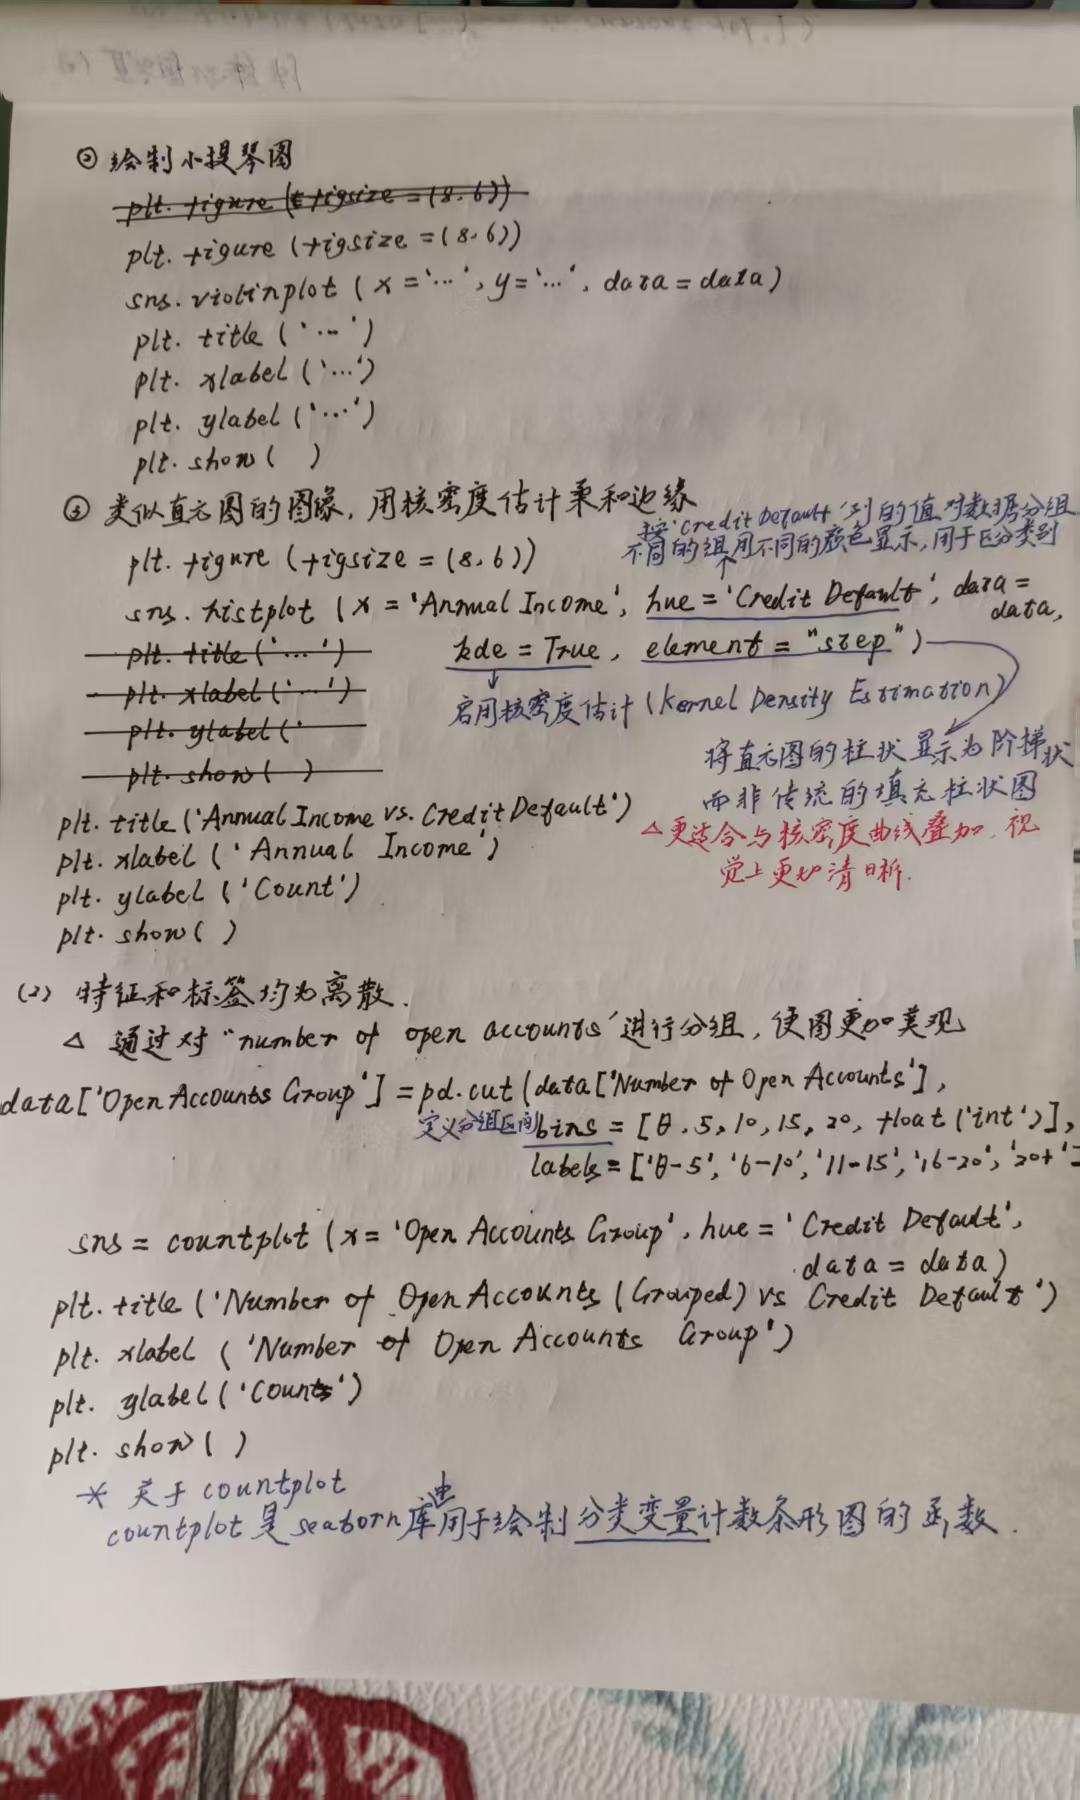 ② 绘制小提琴图
plt. figure (figsize = (8.6))
plt. figure (figsize = (8,6))
sns. violinplot ( x = '...' , y = '...' , data = data )
plt. title ( '...' )
plt. xlabel ( '...' )
plt. ylabel ( '...' )
plt. show ( )
③ 类似直方图的图像, 用核密度估计柔和边缘
按 'Credit Default' 列的值对数据分组
不同的组用不同的颜色显示, 用于区分类别
plt. figure (figsize = (8,6))
sns. histplot ( x = 'Annual Income' , hue = 'Credit Default' , data =
data,
plt. title ( '...' )
kde = True , element = "step" )
plt. xlabel ( '...' )
启用核密度估计 (Kernel Density Estimation)
plt. ylabel ( '
将直方图的柱状显示为阶梯状
plt. show ( )
而非传统的填充柱状图
plt. title ('Annual Income vs. Credit Default')
△ 更适合与核密度曲线叠加, 视
plt. xlabel ( 'Annual Income' )
觉上更加清晰.
plt. ylabel ( 'Count' )
plt. show ( )
(2) 特征和标签均为离散.
△ 通过对 "number of open accounts" 进行分组, 使图更加美观
data ['Open Accounts Group'] = pd. cut (data ['Number of Open Accounts'] ,
定义分组区间 bins = [0, 5, 10, 15, 20, float ('int')] ,
labels = ['0-5', '6-10', '11-15', '16-20', '20+']
sns = countplot ( x = 'Open Accounts Group' , hue = 'Credit Default' ,
data = data )
plt. title ( 'Number of Open Accounts (Grouped) vs Credit Default' )
plt. xlabel ( 'Number of Open Accounts Group' )
plt. ylabel ( 'Counts' )
plt. show ( )
* 关于 countplot
countplot 是 seaborn 库中用于绘制分类变量计数条形图的函数.